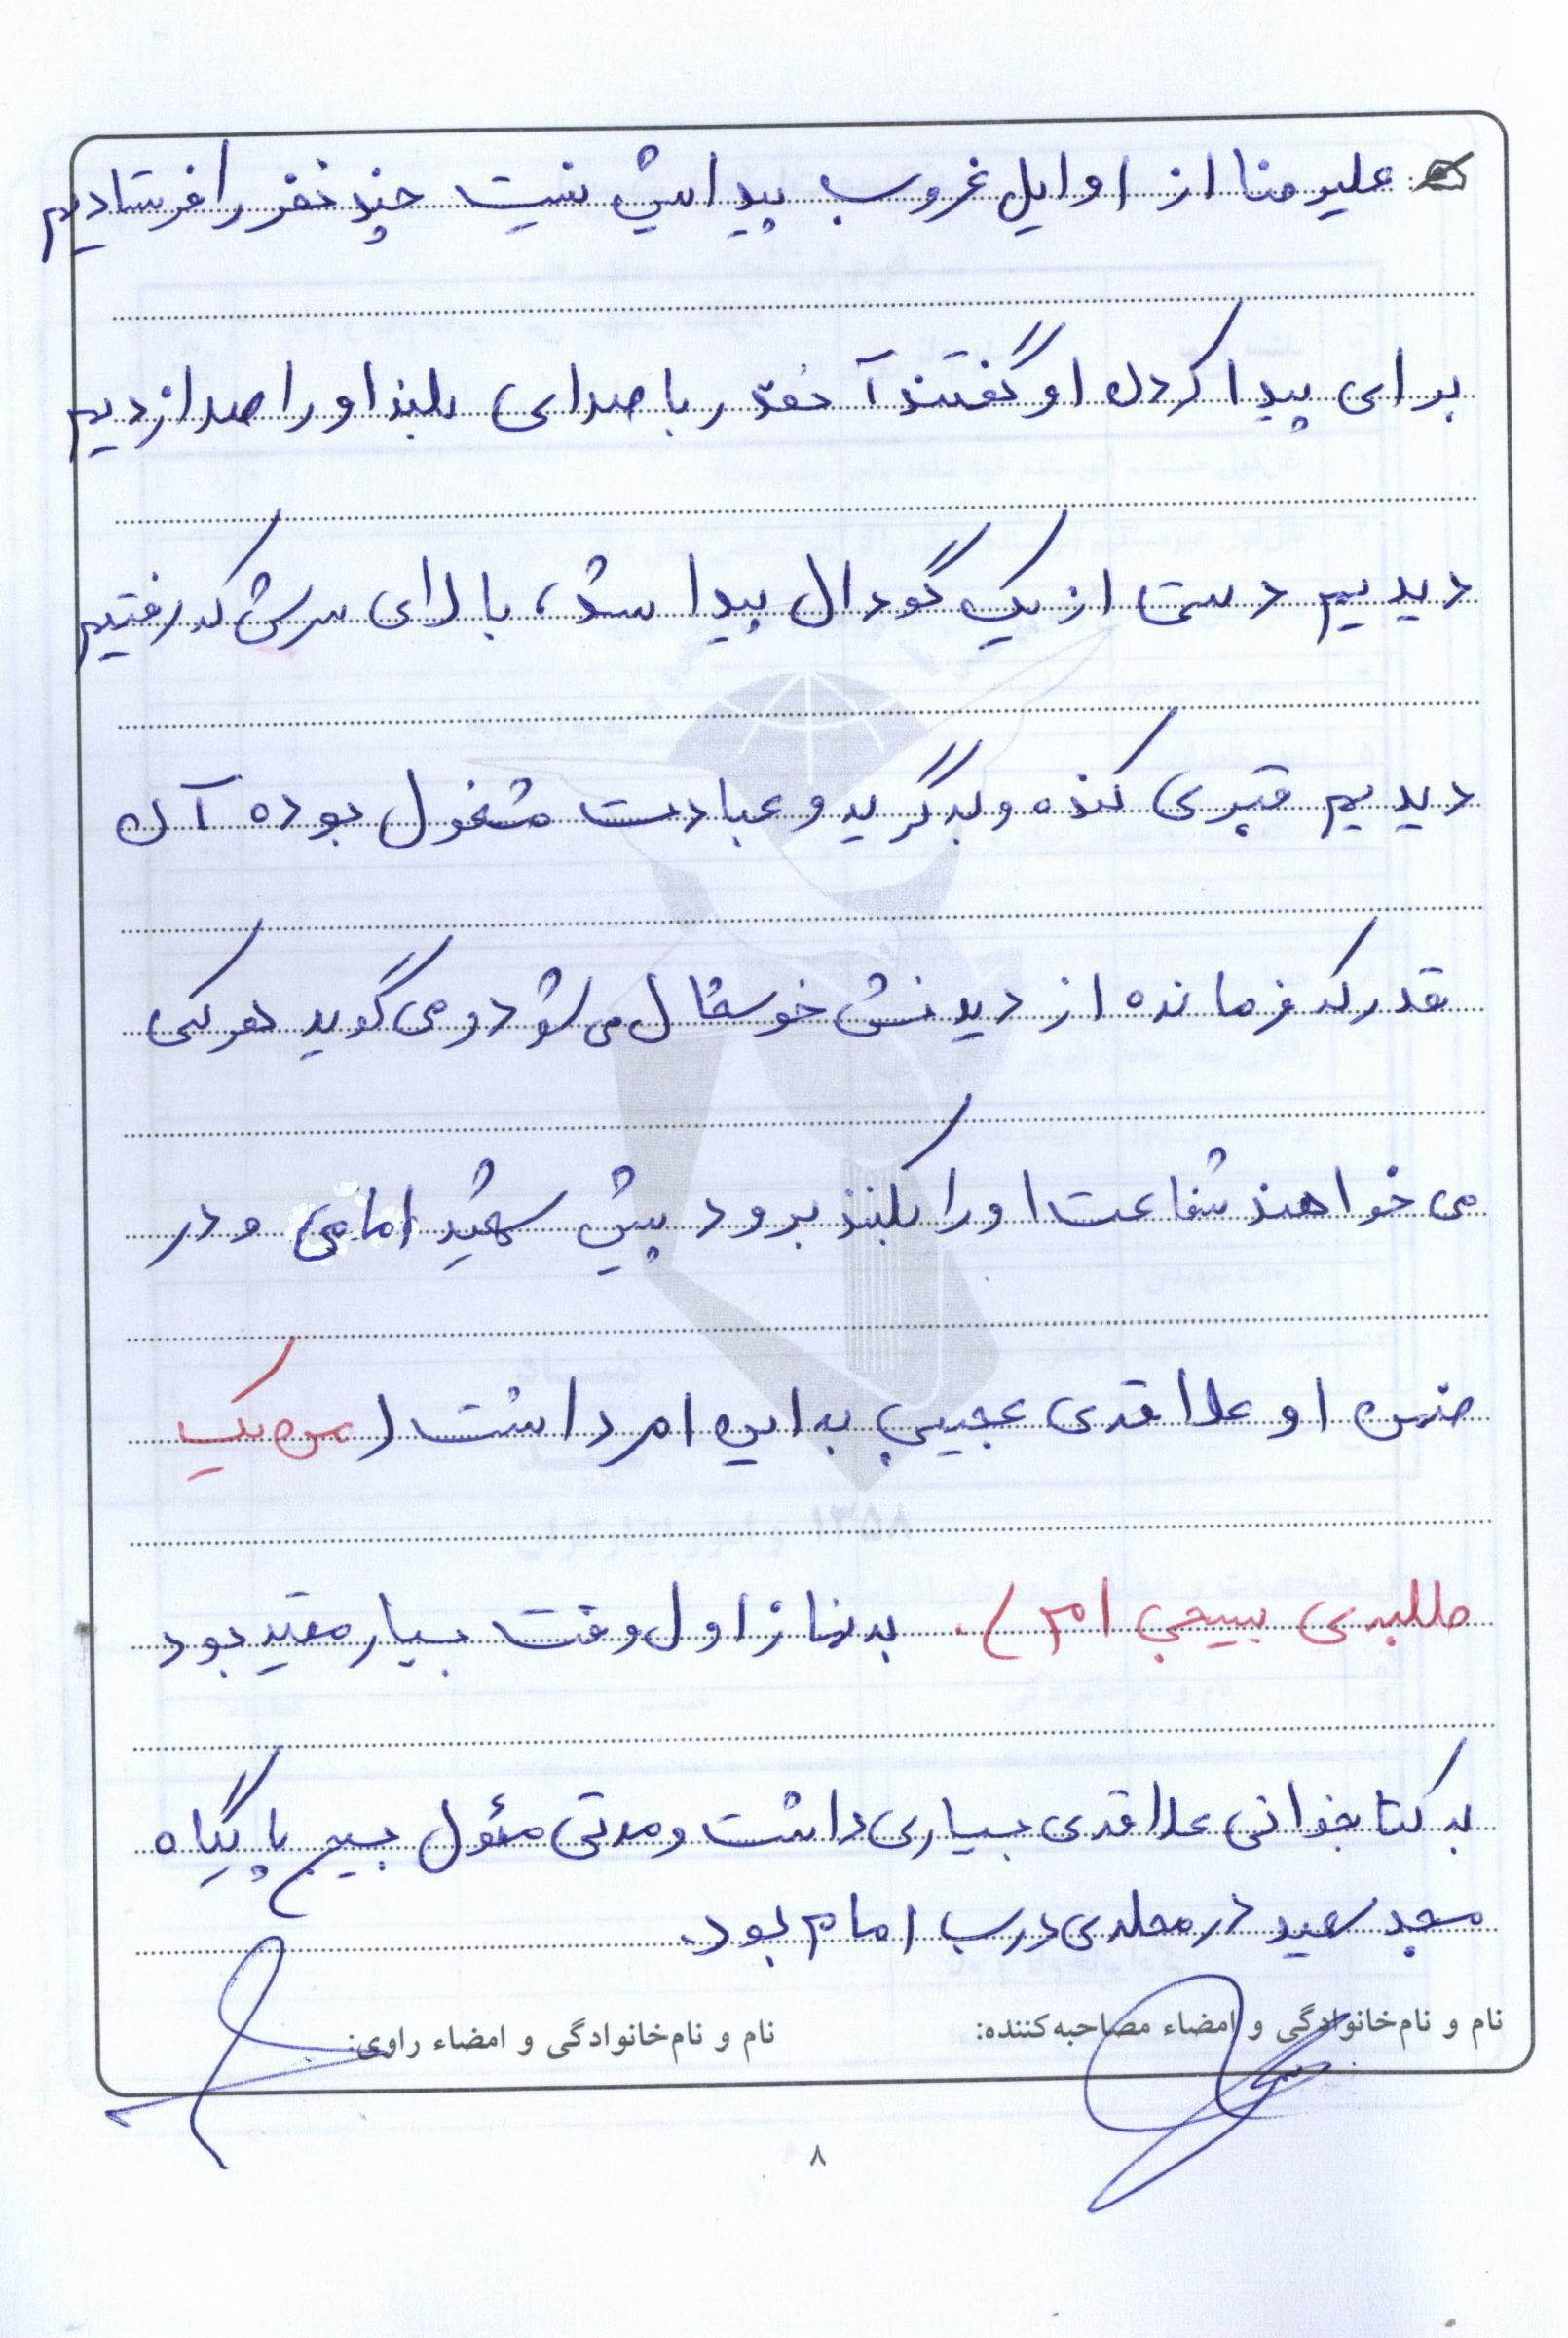 علیرضا از اوایل غروب پیداش نیست چند نفر را فرستادیم
برای پیدا کردن او گفتند آنقدر با صدای بلند او را صدا زدیم
دیدیم دستی از یک گودال پیدا شد، بالای سرش که رفتیم
دیدیم قبری کنده و به گریه و عبادت مشغول بوده آن
قدر که فرمانده از دیدنش خوشحال می شود و می گوید هر کسی
می خواهند شفاعت او را بکنند برود پیش شهید امامی و در
ضمن او علاقه ی عجیبی به این امر داشت (من یک
طلبه ی بسیجی ام). به نماز اول وقت بسیار مقید بود
به کتابخوانی علاقه ی بسیاری داشت و مدتی مسئول بسیج پایگاه
مسجد سعید در محله ی درب امام بود.
نام و نام‌خانوادگی و امضاء مصاحبه‌کننده:
نام و نام‌خانوادگی و امضاء راوی:
۸